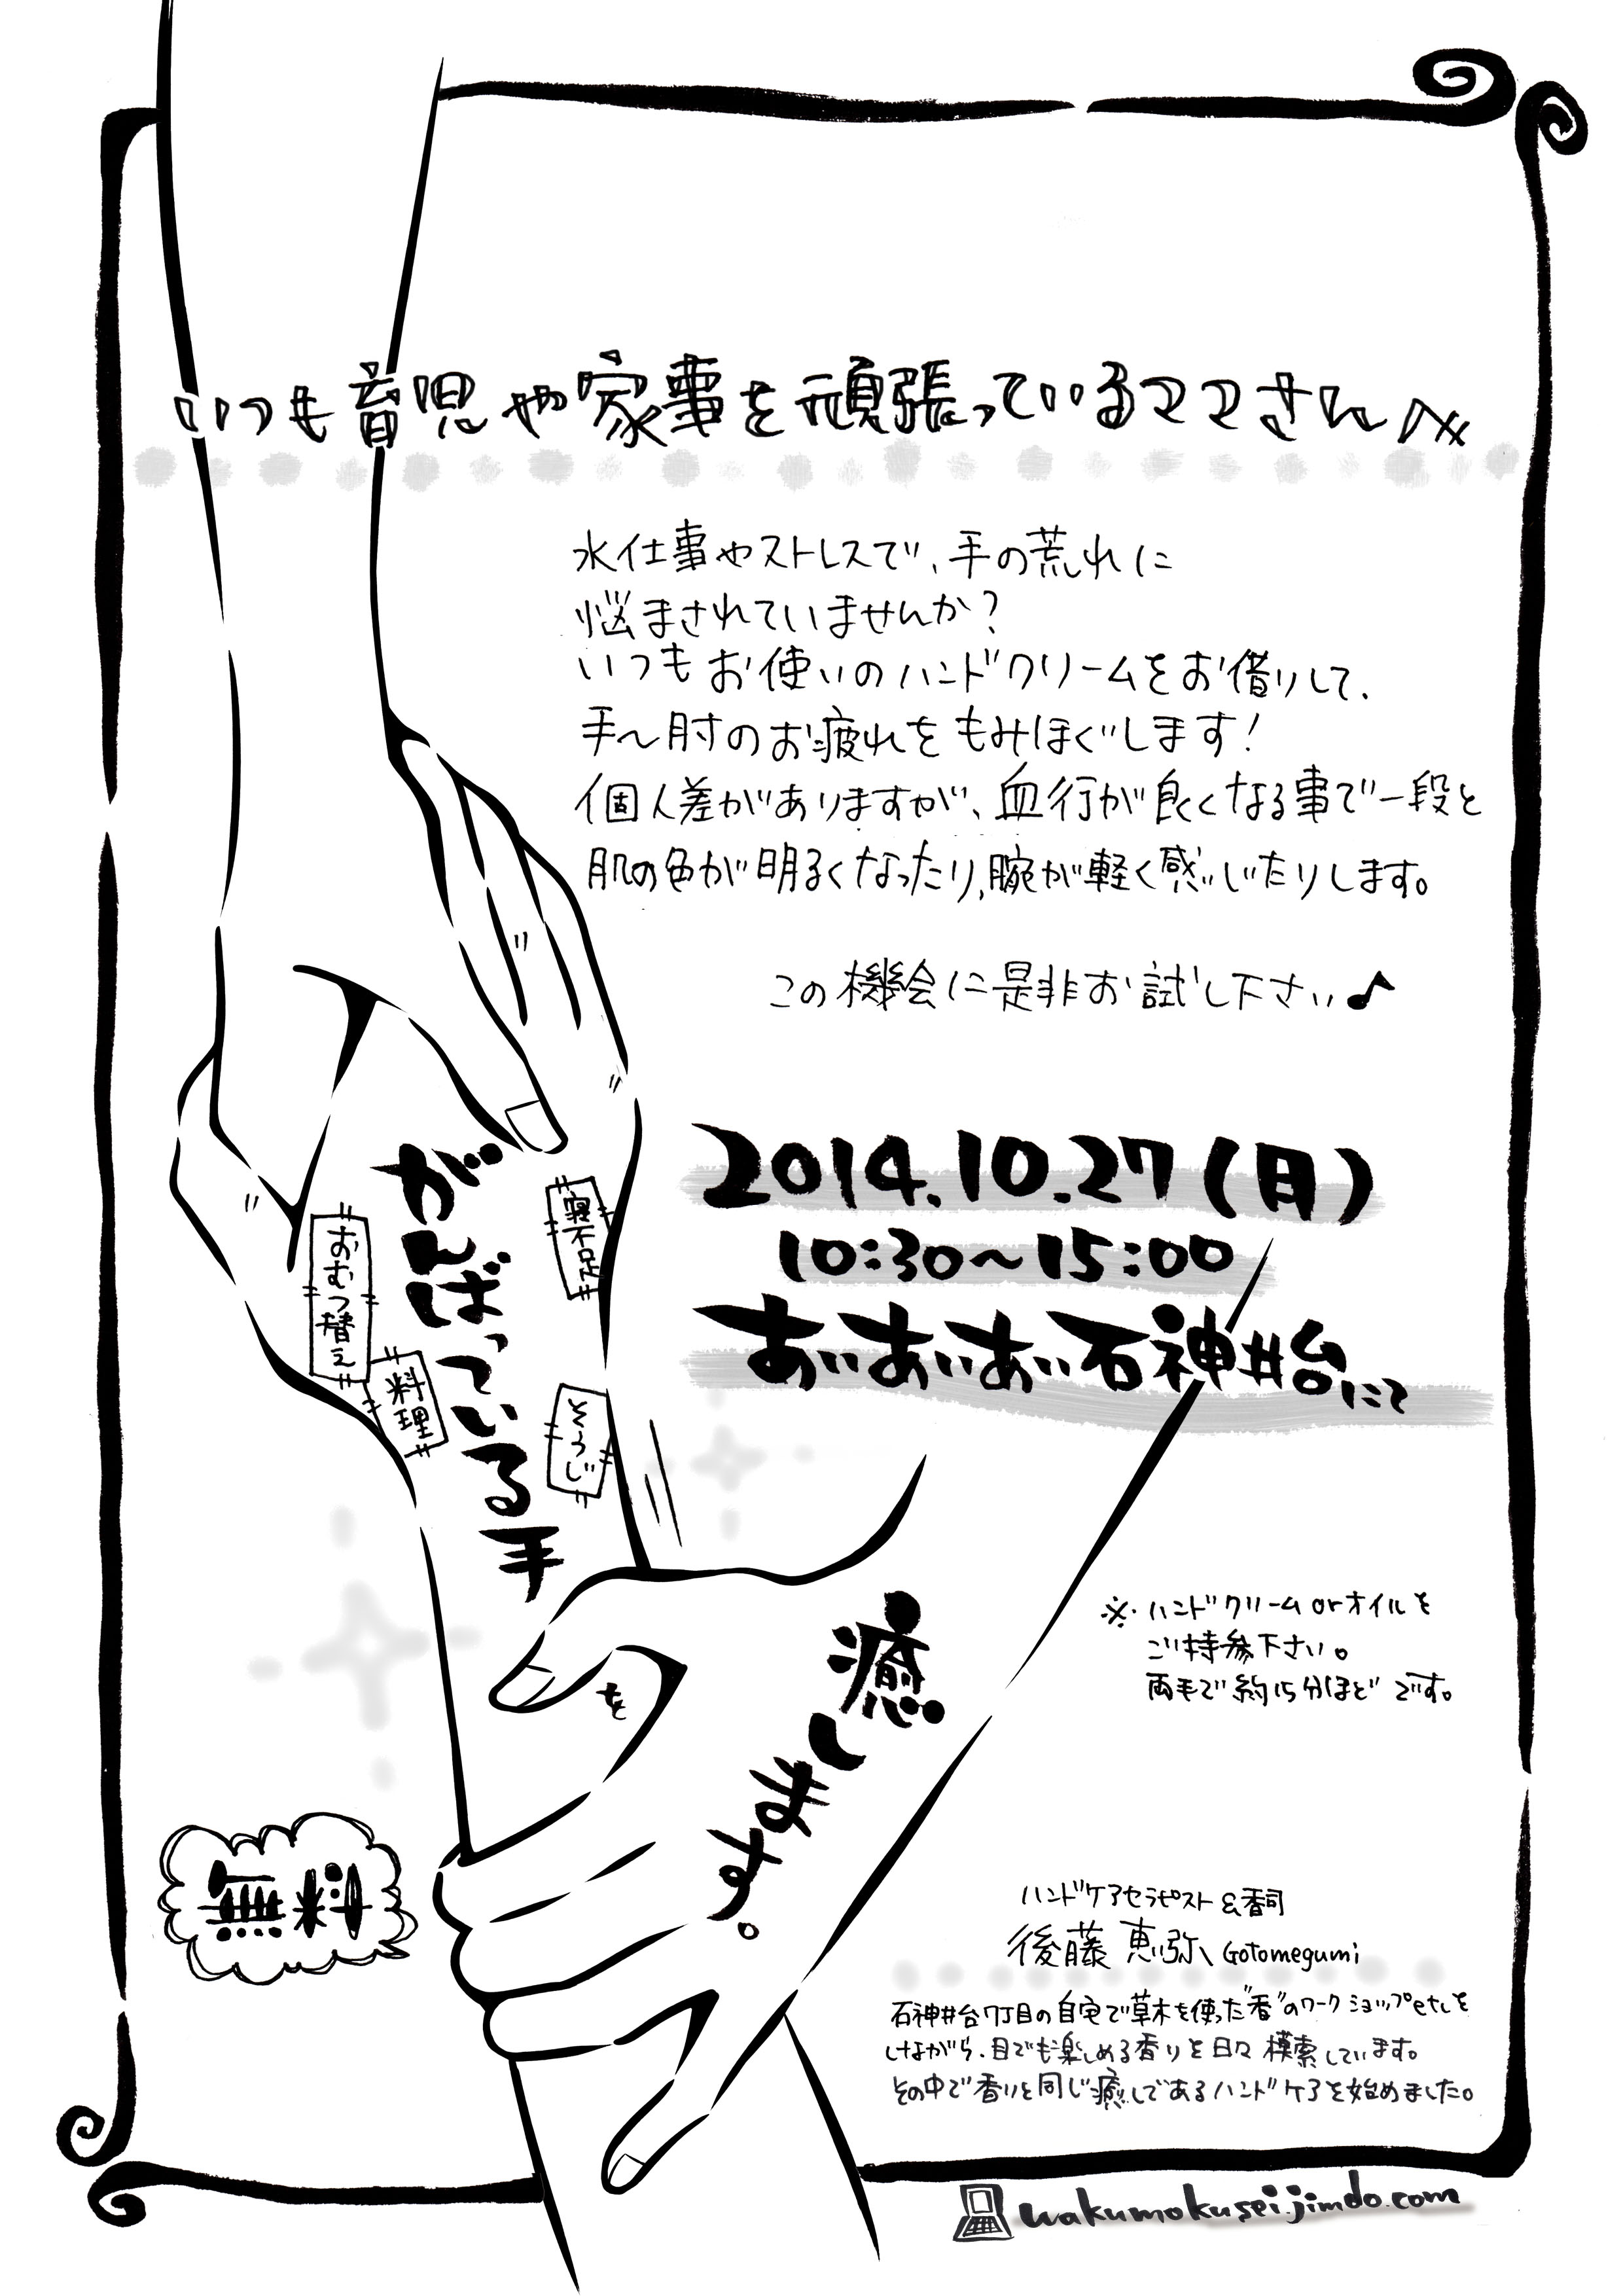 いつも育児や家事を頑張っているママさんへ
水仕事やストレスで、手の荒れに
悩まされていませんか?
いつもお使いのハンドクリームをお借りして、
手〜肘のお疲れをもみほぐします!
個人差がありますが、血行が良くなる事で一段と
肌の色が明るくなったり、腕が軽く感じたりします。
この機会に是非お試し下さい♪
2014.10.27(月)
10:30〜15:00
あいあいあい石神井台にて
がんばっている手
寝不足
おむつ替え
料理
そうじ
を
癒します。
※ハンドクリームorオイルを
ご持参下さい。
両手で約15分ほどです。
無料
ハンドケアセラピスト&香司
後藤 恵弥 Gotomegumi
石神井台7丁目の自宅で草木を使った"香"のワークショップetcを
しながら、目でも楽しめる香りを日々模索しています。
その中で香りと同じ癒しであるハンドケアを始めました。
wakumokusei.jimdo.com